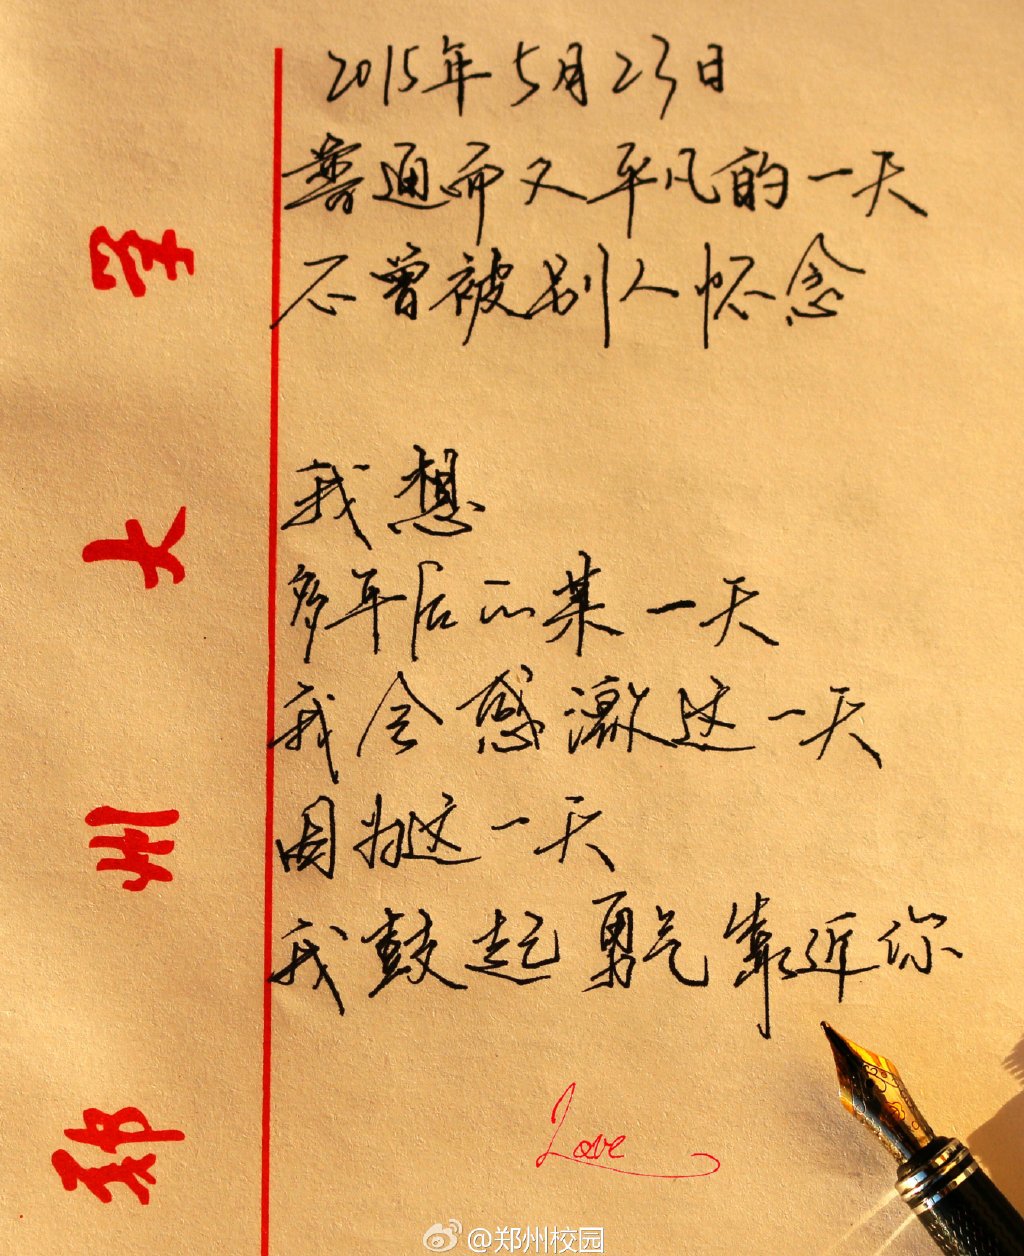 2015年5月23日
普通而又平凡的一天
不曾被别人怀念
我想
多年后的某一天
我会感激这一天
因为这一天
我鼓起勇气靠近你
Love
郑州大学
@郑州校园